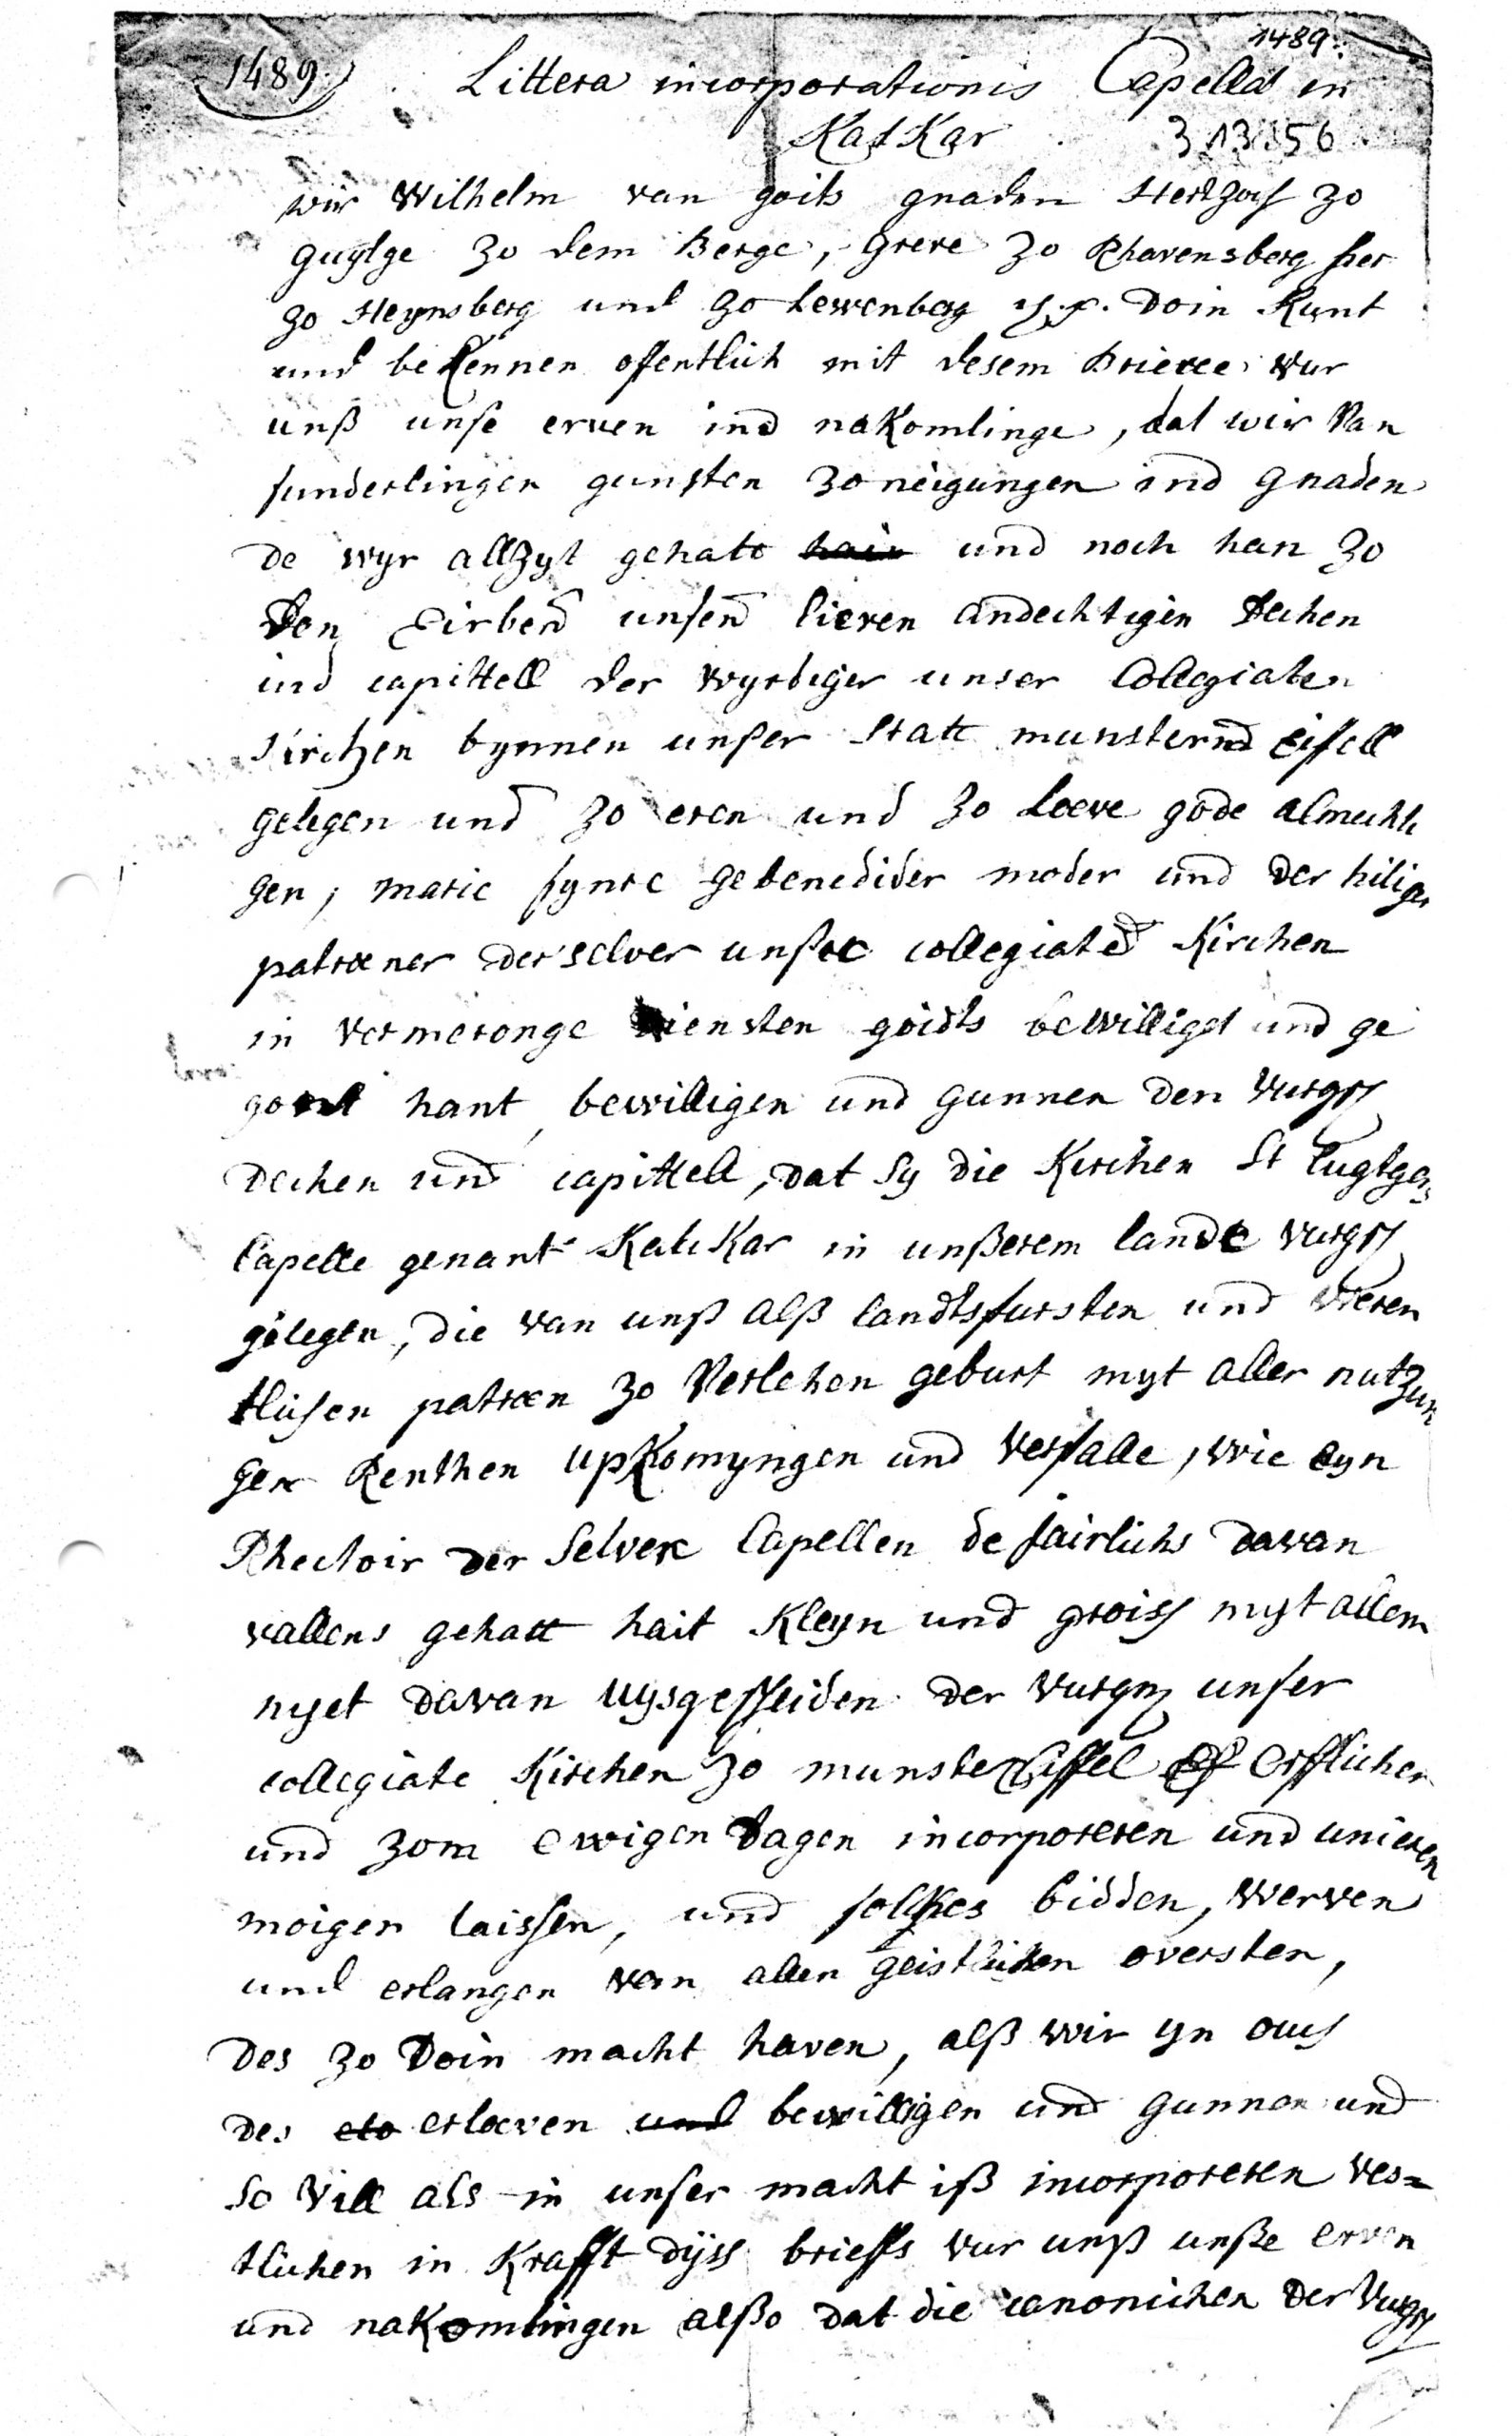 1489.
1489.
Littera incorporationis Capellae in
KatKar
313356
wir Wilhelm van goits gnaden Hertzoch zo
guylge zo dem Berge, greve zo Rhavensberg her
zo Heynsberg und zo Lewenberg Doin Kunt
und beKennen offentlich mit desem Brieve vur
unß unse erven ind naKomlinge, dat wir Van
sunderlingen gunsten zoneigungen ind gnaden
de wyr allzyt gehatt hain und noch han zo
den Eirbern unsern lieven andechtigen Dechen
ind capittell der wyrdiger unser Collegiaten
Kirchen bynnen unser Statt munsterind eifell
gelegen und zo eren und zo Loeve gode almechti
gen, marie synre gebenedider moder und der hiliger
patroener derselver unsre collegiater Kirchen
in vermeronge diensten goidts bewilliget und ge
gont hant, bewilligen und gunnen den Vurgss
dechen und capittell, dat sy die Kirchen St lugtger
Capelle genant KatKar in unßerem lande vurgss
gelegen, die van unß alß landtsfursten und
tlichen patroen zo Verlehen geburt myt aller nutzun
gen Renthen upKomyngen und Verfalle, wie eyn
Rhectoir der Selver Capellen de jairlichs davan
vallens gehatt hait Kleyn und groiss myt allem
nyet davan uysgescheiden der vurgen unser
collegiate Kirchen zo munstereiffel erfflichen
und zom ewigen Dagen incorporeren und unieren
moigen laissen, und solches bidden, werven
und erlangen van allen geistlichen oversten,
des zo Doin macht haven, alß wir yn ouch
des etо erloeven und bewilligen und gunnen und
so vill als in unser macht iß incorporeren ves=
tlichen in Krafft dyss brieffs vur unß unße erven
und naKomlingen alßo dat die canonichen der Vurgss